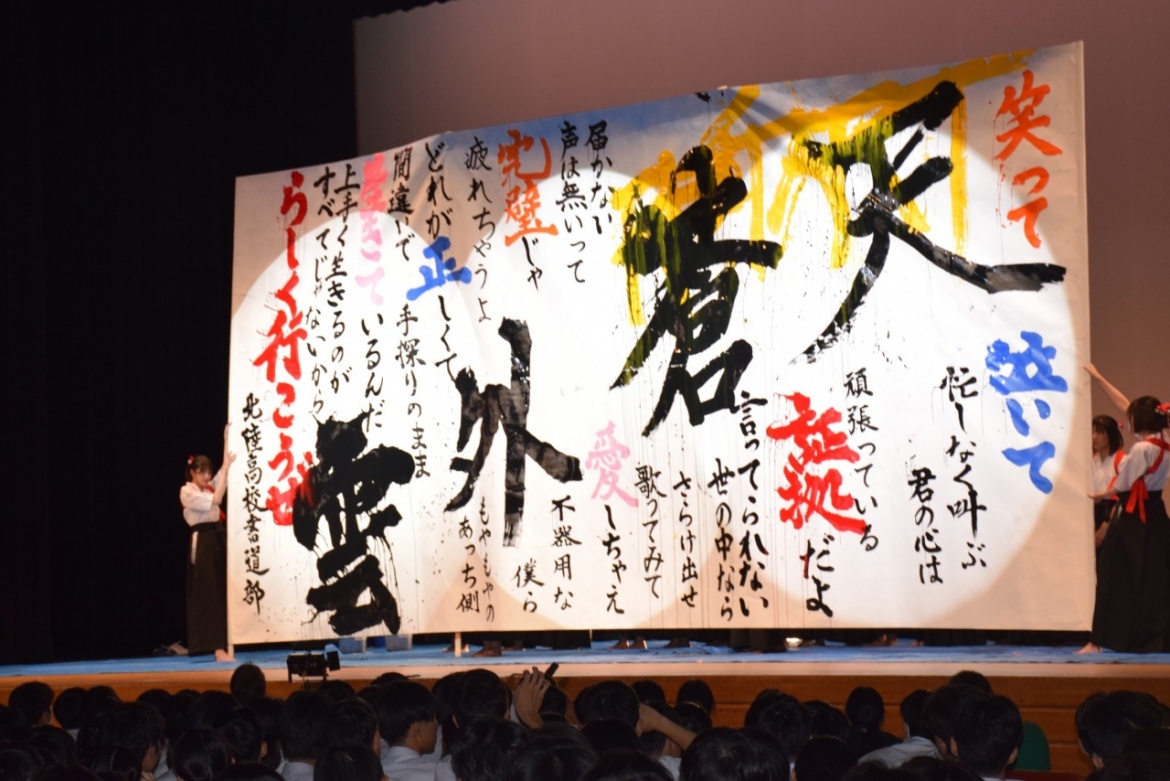 雲外蒼天
笑って
泣いて
忙しなく叫ぶ
君の心は
頑張っている
証拠だよ
言ってられない
世の中なら
さらけ出せ
歌ってみて
愛しちゃえ
届かない
声は無いって
完璧じゃ
疲れちゃうよ
不器用な
僕ら
もやもやの
あっち側
どれが正しくて
間違いで 手探りのまま
生きているんだ
上手く生きるのが
すべてじゃないから
らしく行こうぜ
北陸高校書道部